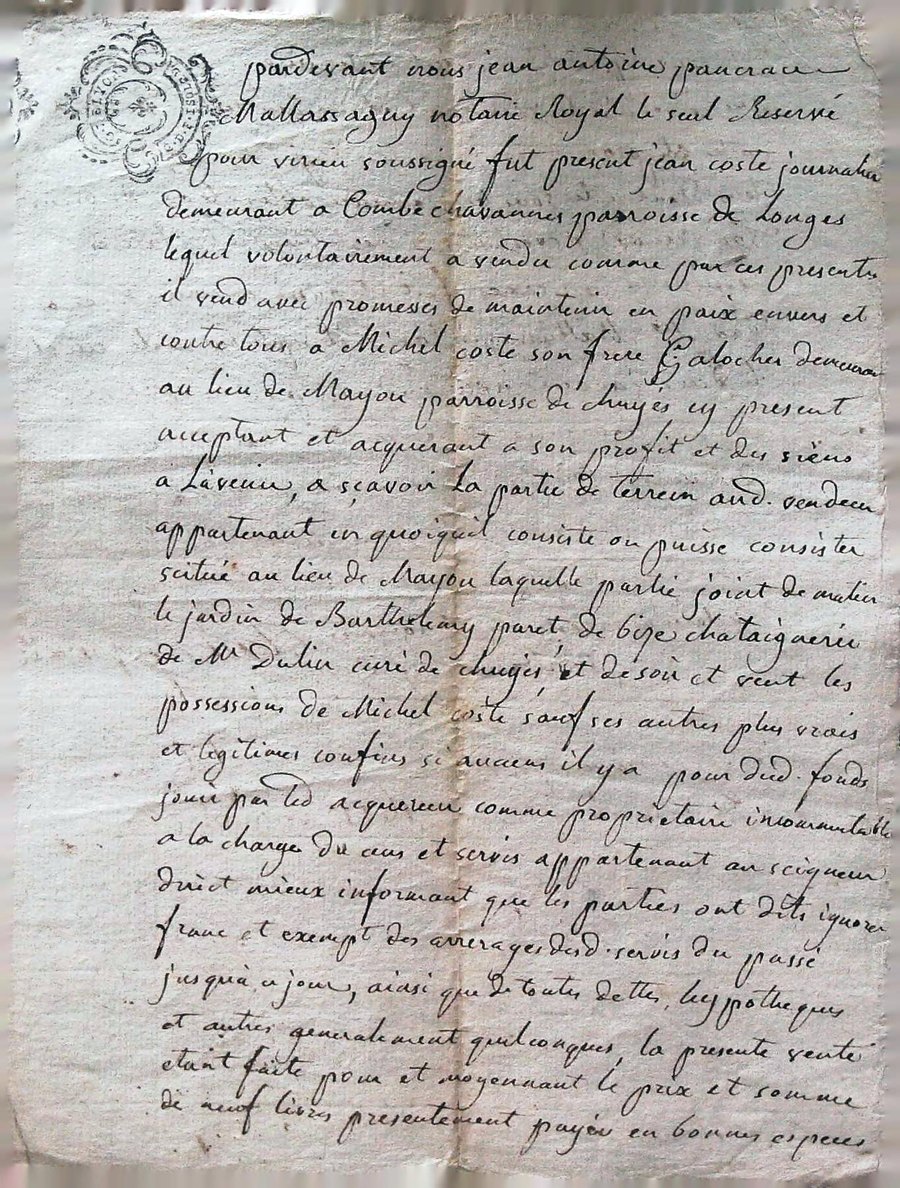 pardevant nous jean antoine pancrace
Mallassagny notaire Royal le seul Reservé
pour virieu soussigné fut present jean coste journalier
demeurant a Combe chavannes parroisse de Longes
lequel volontairement a vendu comme par ces presentes
il vend avec promesses de maintenir en paix envers et
contre tous a Michel coste son frere Galocher demeurant
au lieu de Mayou parroisse de chuyés cy present
acceptant et acquerant a son profit et des siens
a L'avenir, a sçavoir La partie de terrein aud. vendeur
appartenant en quoiquil consiste ou puisse consister
scitué au lieu de Mayou laquelle partie joint de matin
le jardin de Barthelemy paret, de bize chataigneriee
de Mr Dulin curé de chuyés, et de soir et vent les
possessions de Michel coste sauf ses autres plus vrais
et legitimes confins si aucuns il y a pour dud. fonds
jouir par led acquereur comme proprietaire incommutable
a la charge du cens et servis appartenant au seigneur
direct mieux informant que les parties ont dits ignorer
franc et exempt des arrerages desd. servis du passé
jusqu'à ce jour, ainsi que de toutes dettes, hypotheques
et autres generalement quelconques, la presente vente
etant faite pour et moyennant le prix et somme
de neuf livres presentement payée en bonnes especes